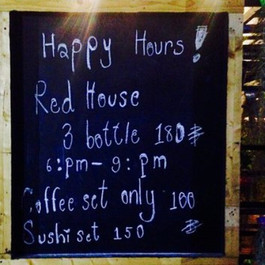 Happy Hours!
Red House
3 bottle 180฿
6:pm-9:pm
Coffee set only 100
Sushi set 150 ฿